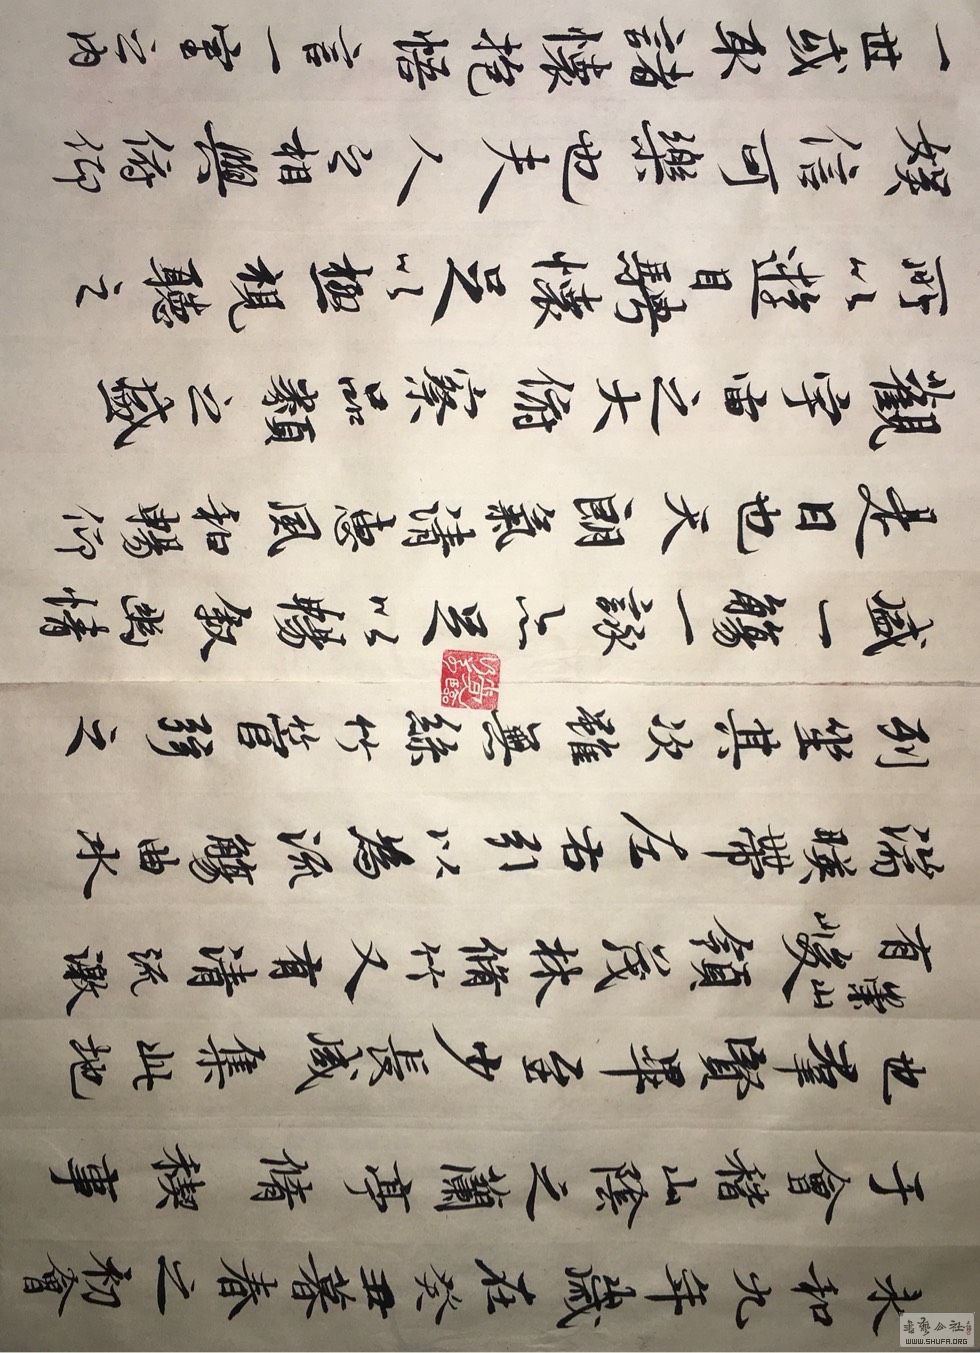 永和九年歲在癸丑暮春之初會
于會稽山陰之蘭亭脩稧事
也羣賢畢至少長咸集此地
有崇山峻領茂林脩竹又有清流激
湍暎帶左右引以為流觴曲水
列坐其次雖無絲竹管弦之
盛一觴一詠亦足以暢敘幽情
是日也天朗氣清惠風和暢仰
觀宇宙之大俯察品類之盛
所以遊目騁懷足以極視聽之
娛信可樂也夫人之相與俯仰
一世或取諸懷抱悟言一室之內
WWW.SHUFA.ORG